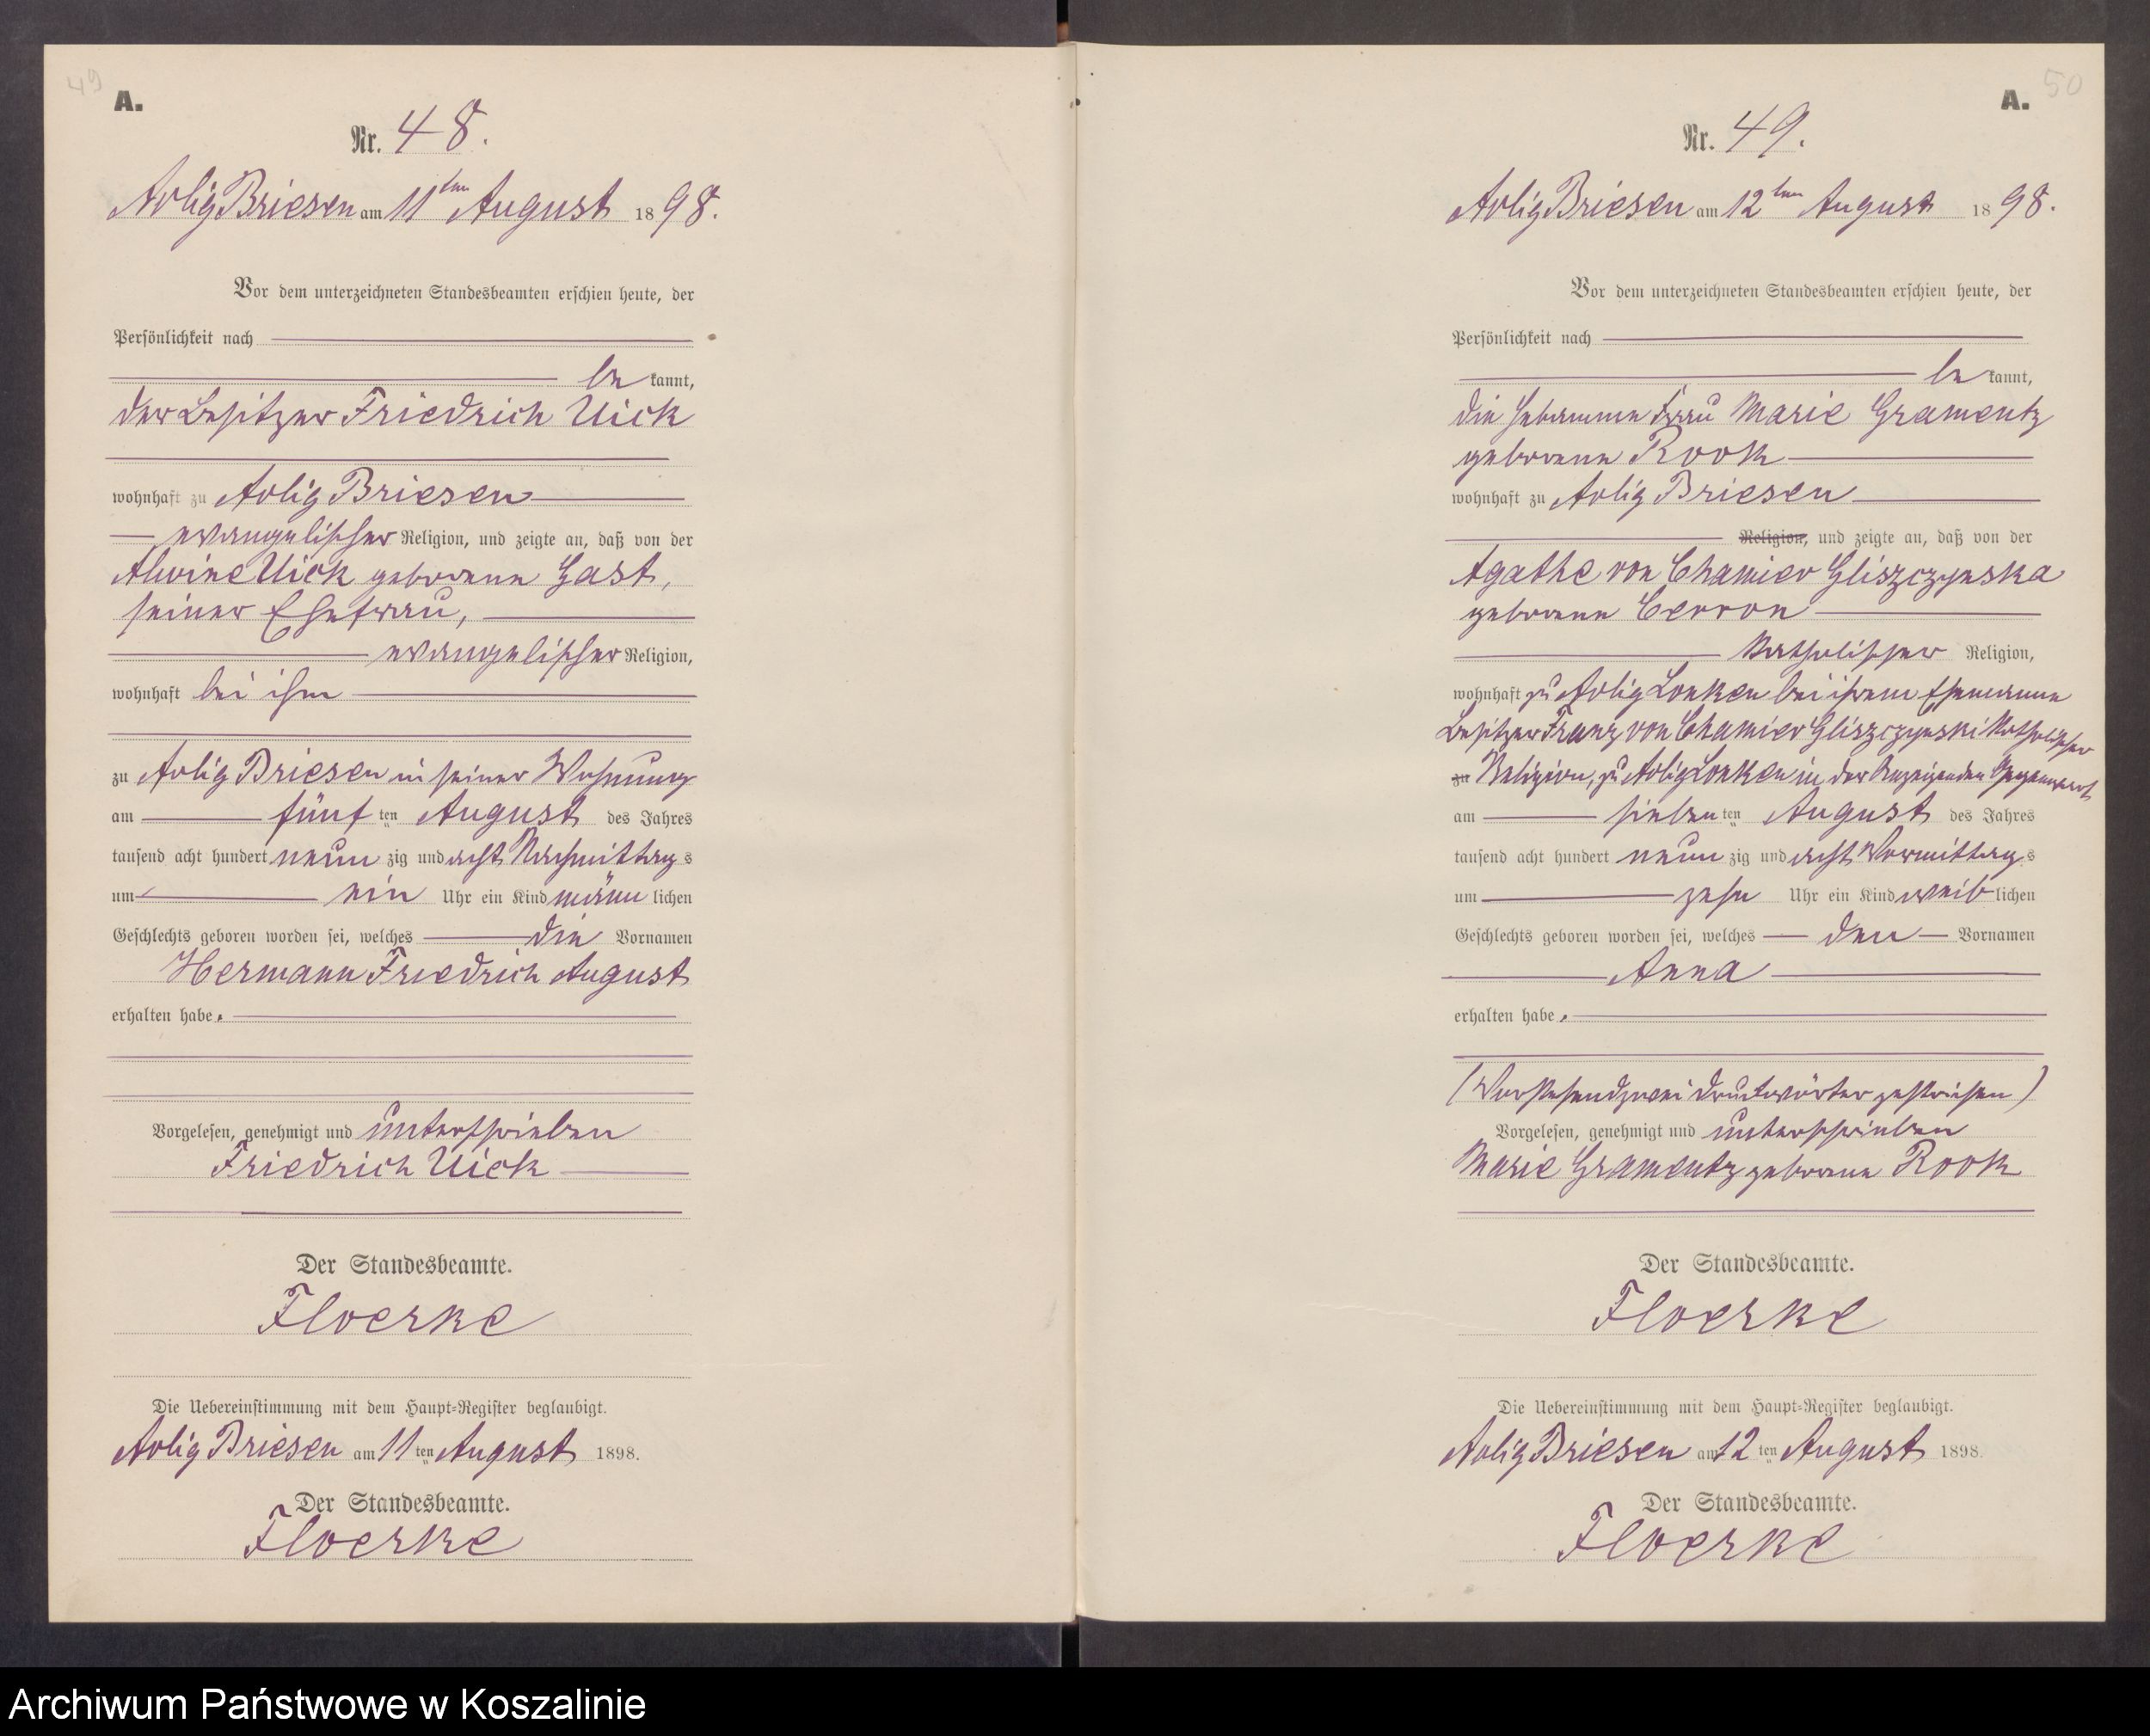 49
A.
Nr. 48.
Adlig Briesen am 11ten August 1898.
Vor dem unterzeichneten Standesbeamten erschien heute, der
Persönlichkeit nach
be kannt,
der Besitzer Friedrich Uick
wohnhaft zu Adlig Briesen
evangelischer Religion, und zeigte an, daß von der
Alwine Uick geborene Gast,
seiner Ehefrau,
evangelischer Religion,
wohnhaft bei ihm
zu Adlig Briesen in seiner Wohnung
am fünf ten August des Jahres
tausend acht hundert neun zig und acht Nachmittag s
um ein Uhr ein Kind männ lichen
Geschlechts geboren worden sei, welches die Vornamen
Hermann Friedrich August
erhalten habe.
Vorgelesen, genehmigt und unterschrieben
Friedrich Uick
Der Standesbeamte.
Floerke
Die Uebereinstimmung mit dem Haupt-Register beglaubigt.
Adlig Briesen am 11 ten August 1898.
Der Standesbeamte.
Floerke
50
A.
Nr. 49.
Adlig Briesen am 12ten August 1898.
Vor dem unterzeichneten Standesbeamten erschien heute, der
Persönlichkeit nach
be kannt,
die Hebamme Frau Marie Gramentz
geborene Rook
wohnhaft zu Adlig Briesen
Religion, und zeigte an, daß von der
Agathe von Chamier Gliszczynska
geborene Cerron
katholischer Religion,
wohnhaft zu Adlig Lonken bei ihrem Ehemanne
Besitzer Franz von Chamier Gliszczynski katholischer
zu Religion, zu Adlig Lonken in der Anzeigenden Gegenwart
am sieben ten August des Jahres
tausend acht hundert neun zig und acht Vormittag s
um zehn Uhr ein Kind weib lichen
Geschlechts geboren worden sei, welches den Vornamen
Anna
erhalten habe.
(Vorstehend zwei Druckwörter gestrichen)
Vorgelesen, genehmigt und unterschrieben
Marie Gramentz geborene Rook
Der Standesbeamte.
Floerke
Die Uebereinstimmung mit dem Haupt-Register beglaubigt.
Adlig Briesen am 12 ten August 1898.
Der Standesbeamte.
Floerke
Archiwum Państwowe w Koszalinie